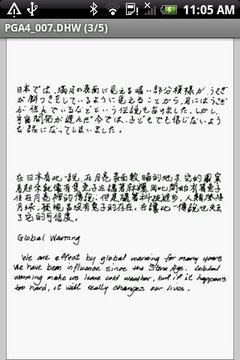 11:05 AM
PGA4_007.DHW (3/5)
日本では、満月の表面に見える暗い部分模様が、うさぎ
が餅つきをしているように見えることから、月にはうさぎ
が住んでいるなどという伝説もありました。しかし、
宇宙開発が進んだ今では、子どもでも信じないよう
な話になってしまいました。
在日本有此一說,在月亮表面較暗的地方,它的
看起來就像有隻兔子在搗著麻糬,因此開始有著兔子
住在月亮裡的傳說。但是隨著科技進步,人類登陸
月球,發現並沒有兔子的存在,
它的可信度。
Global Warning
We are effect by global warning for many years
We have been influence since the Stone Age. Global
warning make us have cold weather, but if it happens
too hard, it will really changes our lives.